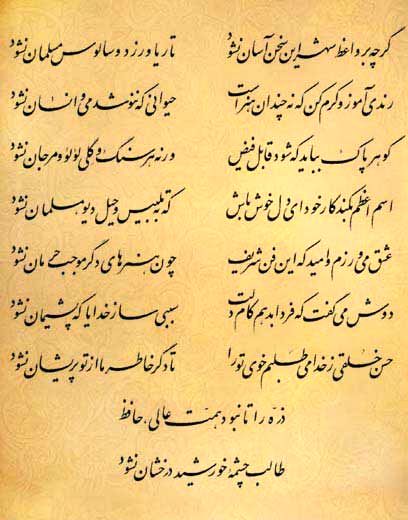 گرچه بر واعظ شهر این سخن آسان نشود
تا ریا ورزد و سالوس مسلمان نشود
رندی آموز و کرم کن که نه چندان هنر است
حیوانی که ننوشد می و انسان نشود
گوهر پاک بباید که شود قابل فیض
ورنه هر سنگ و گلی لؤلؤ و مرجان نشود
اسم اعظم بکند کار خود ای دل خوش باش
که به تلبیس و حیل دیو مسلمان نشود
عشق می ورزم و امید که این فن شریف
چون هنرهای دگر موجب حرمان نشود
دوش می گفت که فردا بدهم کام دلت
سببی ساز خدایا که پشیمان نشود
حسن خلقی ز خدا می طلبم خوی تو را
تا دگر خاطر ما از تو پریشان نشود
ذره را تا نبود همت عالی، حافظ
طالب چشمهٔ خورشید درخشان نشود